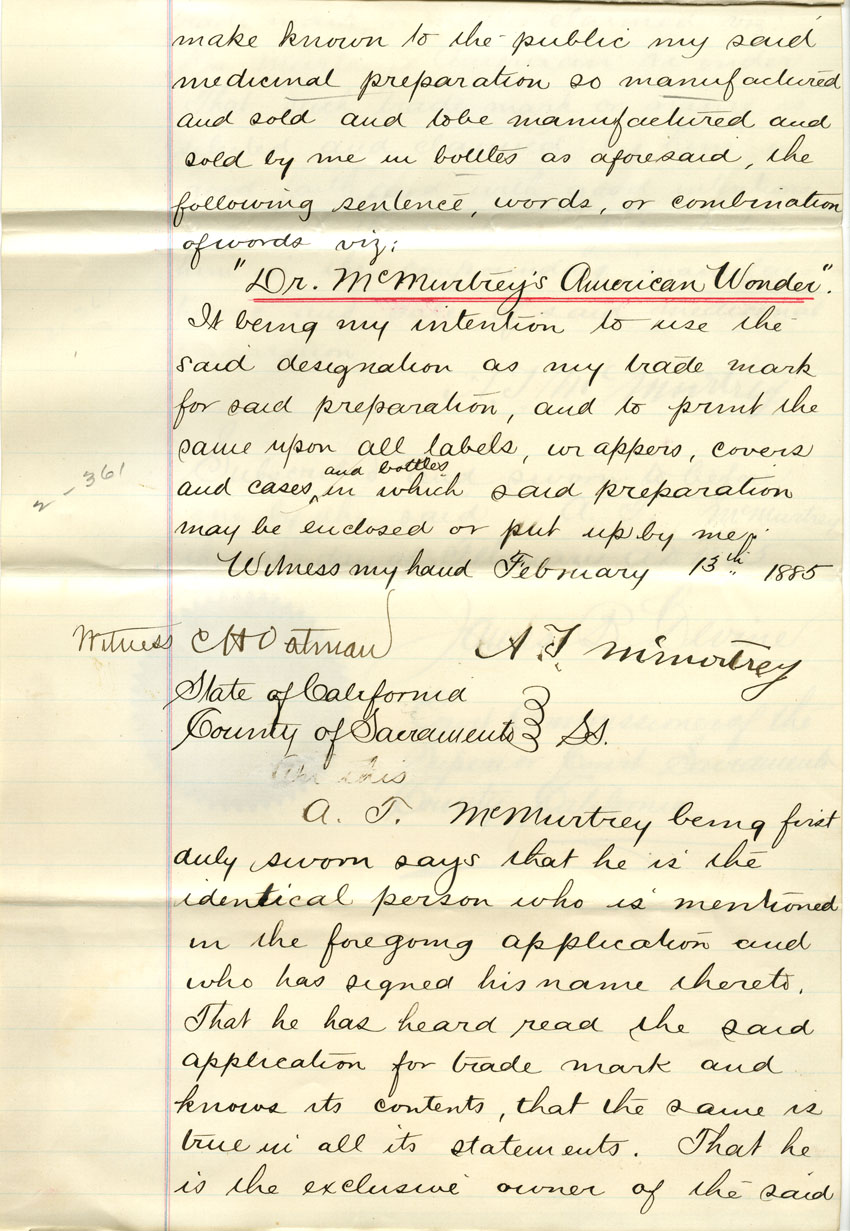 make known to the public my said
medicinal preparation so manufactured
and sold and tobe manufactured and
sold by me in bottles as aforesaid, the
following sentence, words, or combination
of words viz:
"Dr. McMurtrey's American Wonder".
It being my intention to use the
said designation as my trade mark
for said preparation, and to print the
same upon all labels, wrappers, covers
and bottles
and cases, in which said preparation
2 - 361
may be enclosed or put up by me.
Witness my hand February 13th 1885
Witness C H Oatman
A. T. McMurtrey
State of California
County of Sacramento } SS.
On this
A. T. McMurtrey being first
duly sworn says that he is the
identical person who is mentioned
in the foregoing application and
who has signed his name thereto.
That he has heard read the said
application for trade mark and
knows its contents, that the same is
true in all its statements. That he
is the exclusive owner of the said